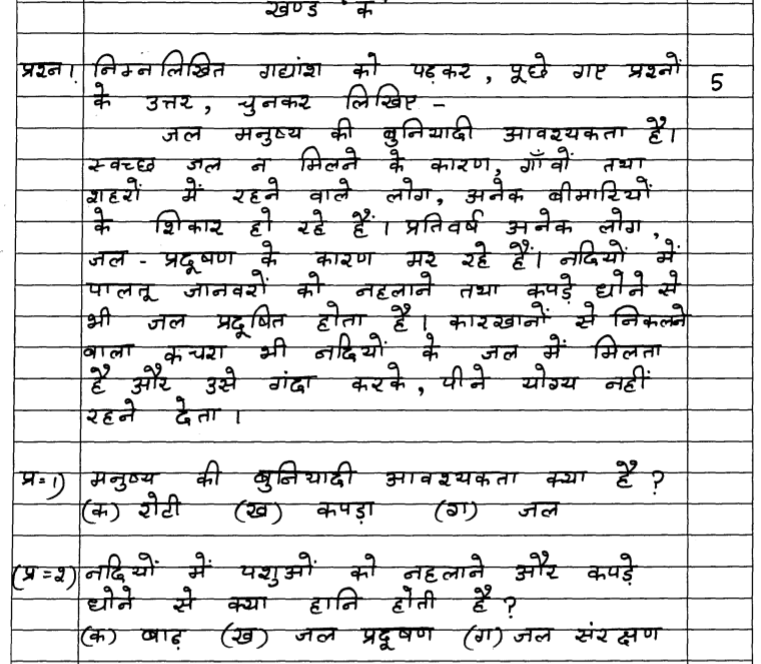 खण्ड क
प्रश्न । निम्नलिखित गद्यांश को पढ़कर , पूछे गए प्रश्नों 5
के उत्तर , चुनकर लिखिए -
जल मनुष्य की बुनियादी आवश्यकता है।
स्वच्छ जल न मिलने के कारण, गाँवों तथा
शहरों में रहने वाले लोग, अनेक बीमारियों
के शिकार हो रहे हैं । प्रतिवर्ष अनेक लोग ,
जल - प्रदूषण के कारण मर रहे हैं। नदियों में
पालतू जानवरों को नहलाने तथा कपड़े धोने से
भी जल प्रदूषित होता है । कारखानों से निकलने
वाला कचरा भी नदियों के जल में मिलता
है और उसे गंदा करके , पीने योग्य नहीं
रहने देता ।
प्र=1) मनुष्य की बुनियादी आवश्यकता क्या है ?
(क) रोटी (ख) कपड़ा (ग) जल
(प्र=२) नदियों में पशुओं को नहलाने और कपड़े
धोने से क्या हानि होती है ?
(क) बाढ़ (ख) जल प्रदूषण (ग) जल संरक्षण